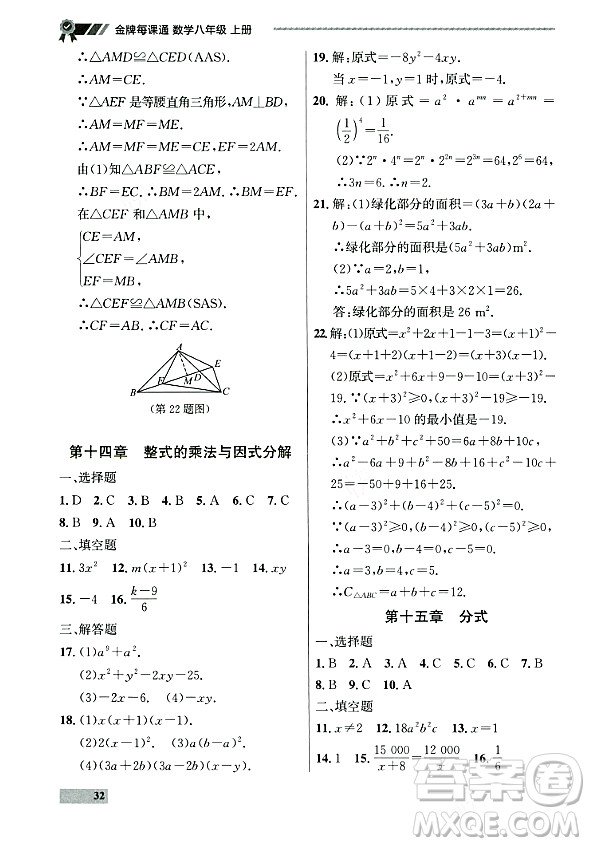 金牌每课通 数学八年级 上册
∴△AMD≌△CED(AAS).
∴AM=CE.
∵△AEF是等腰直角三角形,AM⊥BD,
∴AM=MF=ME.
由(1)知△ABF≌△ACE.
∴BF=EC.∴BM=EF.
在△CEF和△AMB中,
CE=AM,
∠CEF=∠AMB,
EF=MB,
∴△CEF≌△AMB(SAS).
∴CF=AB.∴CF=AC.
A
E
F M D
B C
(第22题图)
第十四章 整式的乘法与因式分解
一、选择题
1. D 2. C 3. B 4. B 5. A 6. C 7. C
8. B 9. A 10. C
二、填空题
11. 3x² 12. m(x+1)² 13. -1 14. xy
15. -4 16. (k-9)/6
三、解答题
17. (1)a⁹+a².
(2)x²+2x-2y-25.
(3)-2x-6.
18. (1)x(x+1)(x-1).
(2)2(1-m)².
(3)(x-y+1)².
(4)(x²+2xy-y²)(x-y)².
19. 解:原式=-8y²-4xy.
当x=-1,y=1时,原式=-4.
20. 解:(1)原式=a²·aᵐⁿ=a²⁺ᵐⁿ=
(1/2)⁴=1/16.
(2)∵2ⁿ·4ⁿ=2ⁿ·2²ⁿ=2³ⁿ=64,
∴3n=6.∴n=2.
21. 解:(1)绿化部分的面积=(3a+b)(2a+
b)-(a+b)²=5a²+3ab.
∴绿化部分的面积是(5a²+3ab)m².
(2)∵a=2,b=1,
∴5a²+3ab=5×4+3×2×1=26.
答:绿化部分的面积是26 m².
22. 解:(1)原式=x²+2x+1-1-3=(x+1)²-
4=(x+1+2)(x+1-2)=(x+3)(x-1).
(2)原式=x²-6x+9-9-10=(x-3)²-
19.∵(x-3)²≥0,∴(x-3)²-19≥
-19.∴x²-6x-10的最小值是-19.
(3)∵a²+b²+c²-6a-8b-10c+50=0,
∴a²-6a+9+b²-8b+16+c²-10c+
25=-50+9+16+25.
∴(a-3)²+(b-4)²+(c-5)²=0.
∵(a-3)²≥0,(b-4)²≥0,(c-5)²≥0,
∴a-3=0,b-4=0,c-5=0.
∴a=3,b=4,c=5.
∴C△ABC=a+b+c=12.
第十五章 分式
一、选择题
1. B 2. A 3. D 4. C 5. A 6. D 7. B
8. D 9. C 10. A
二、填空题
11. x≠2 12. 18a²b²c 13. x=1
14. 1 15. 15 000/(x+8)=12 000/x 16. 1/6
32